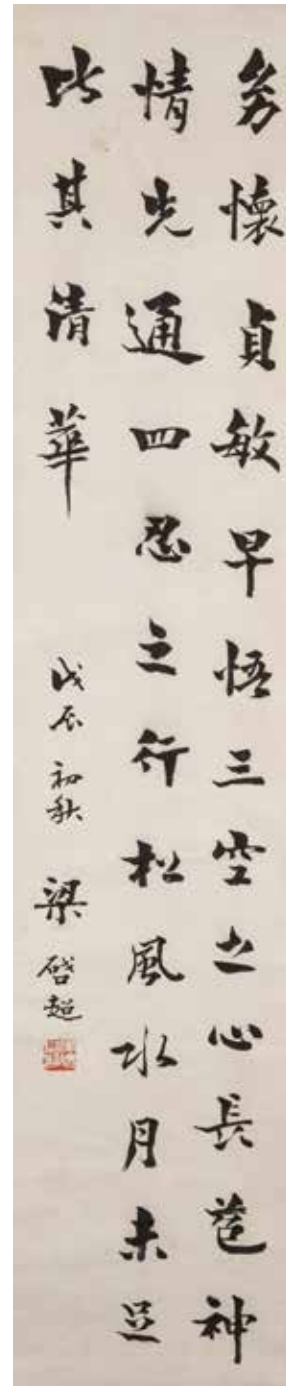 幼懷貞敏早悟三空之心長苞神
情先通四忍之行松風水月未足
比其清華
戊辰初秋 梁啓超